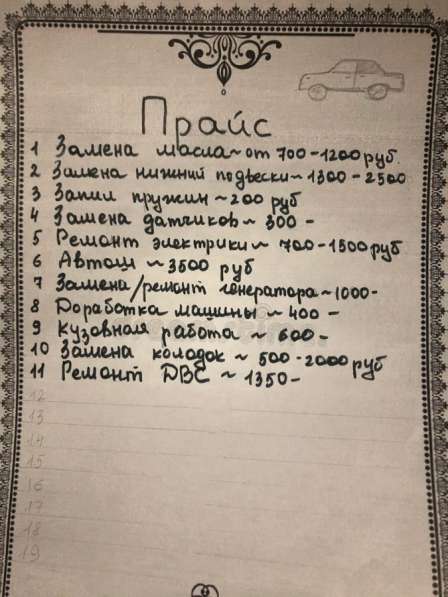 Прайс
1 Замена масла ~ от 700-1200 руб.
2 Замена нижний подвески ~ 1300-2500
3 Запил пружин ~ 200 руб
4 Замена датчиков ~ 300 -
5 Ремонт электрики ~ 700-1500 руб
6 Автош ~ 3500 руб
7 Замена/ремонт генератора ~ 1000-
8 Доработка машины ~ 400 -
9 Кузовная работа ~ 600 -
10 Замена колодок ~ 500-2000 руб
11 Ремонт ДВС ~ 1350-
12
13
14
15
16
17
18
19